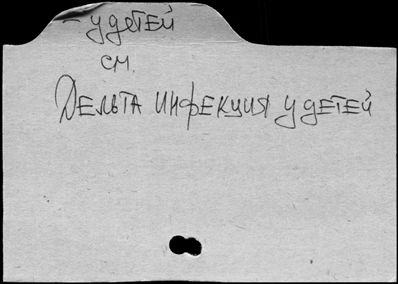 - у детей
см.
Дельта инфекция у детей